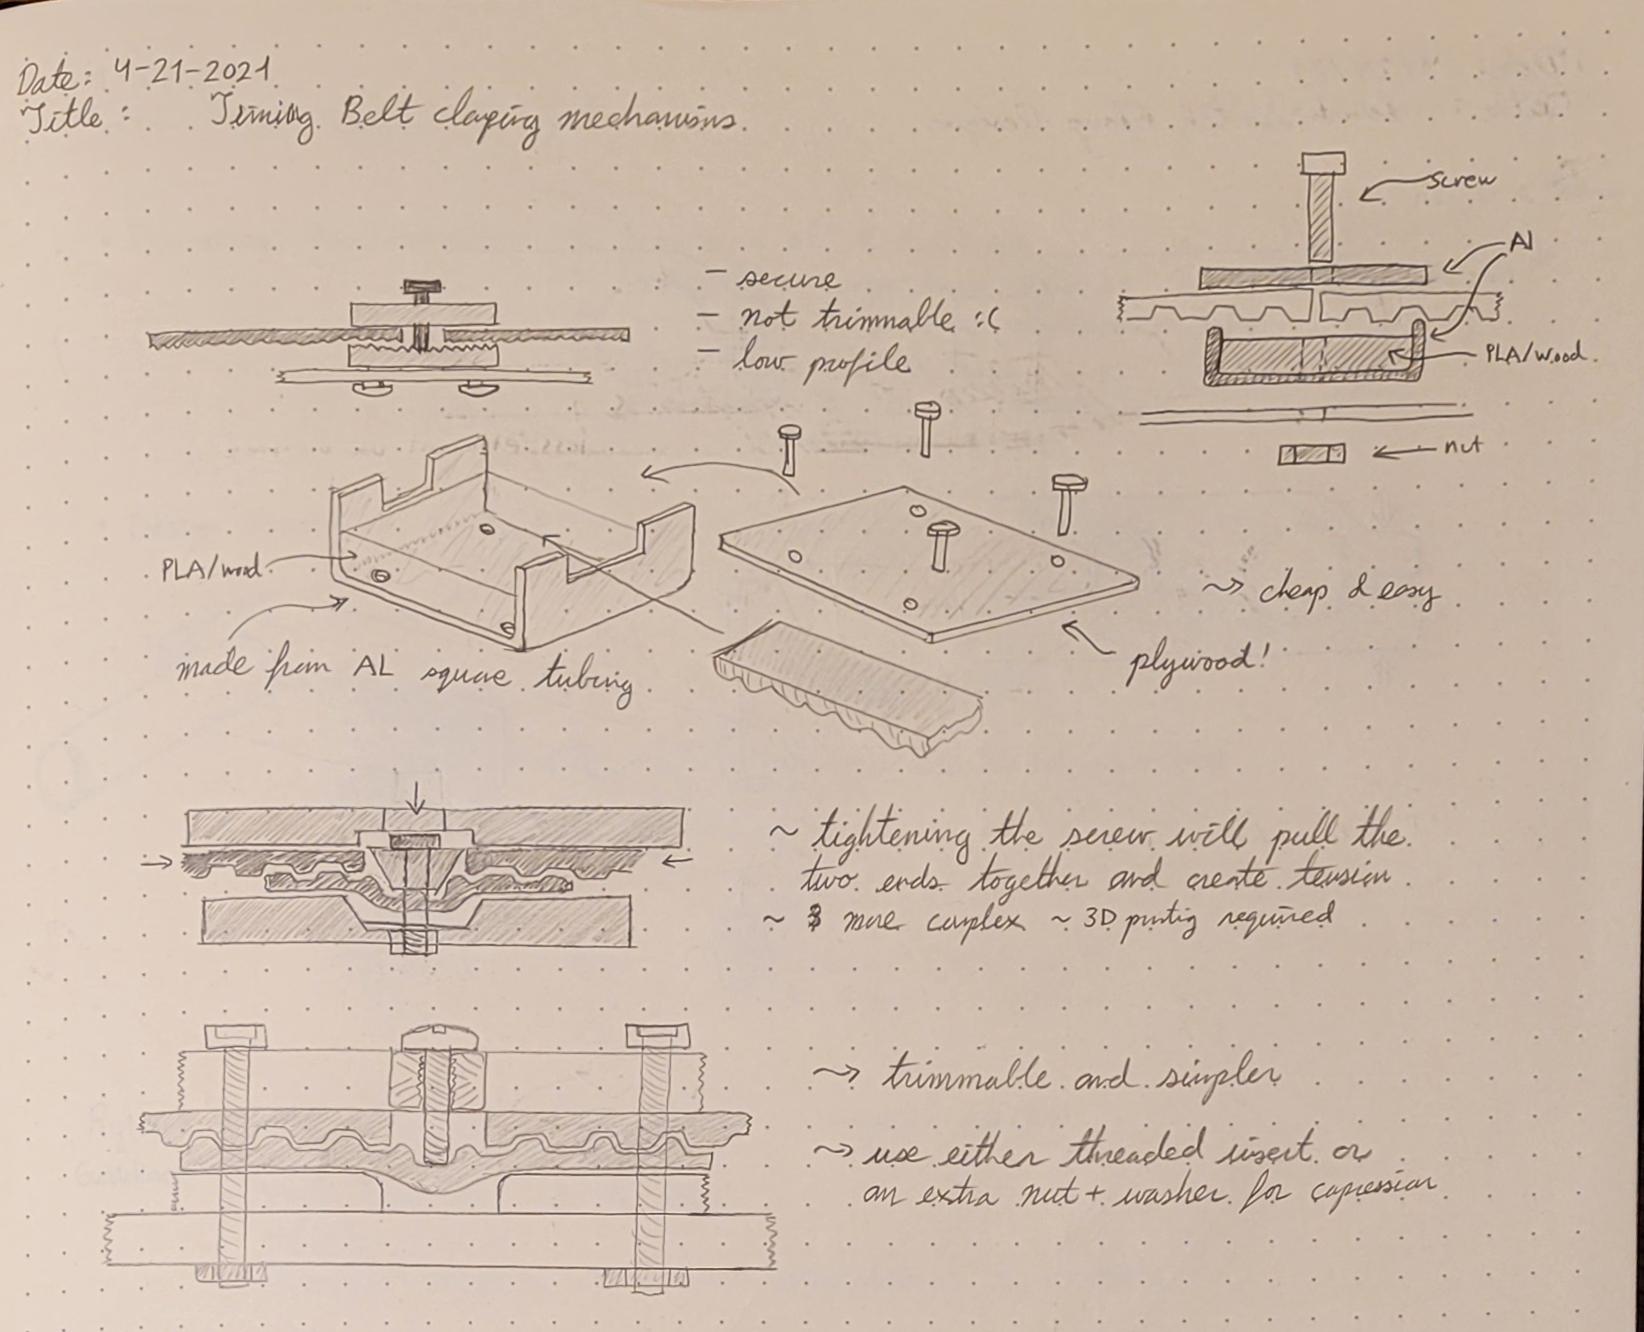 Date: 4-21-2021
Title: Timing Belt claping mechanisms
screw
Al
PLA/wood
nut
- secure
- not trimmable :(
- low profile
PLA/wood
made from AL square tubing
~> cheap & easy
plywood!
~ tightening the screw will pull the
two ends together and create tension
~ more complex ~ 3D printig required
~> trimmable and simpler
~> use either threaded insert or
an extra nut + washer for copression